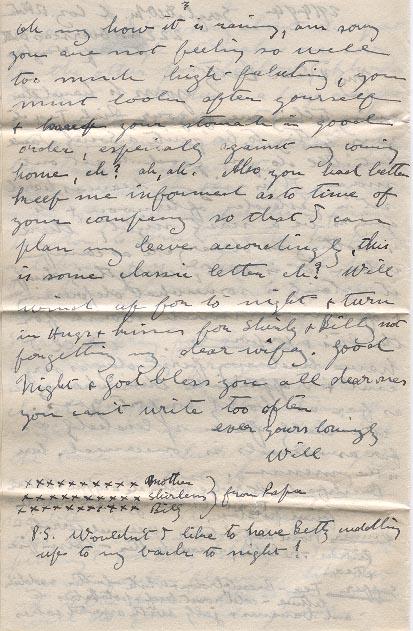 3
Oh my how it is raining, am sorry
you are not feeling so well
too much high-faluting, you
must look after yourself
& your stomach in good
order, especially against my coming
home, eh? ah, ah. Also you had better
keep me informed as to time of
your company so that I can
plan my leave accordingly, this
is some classic letter eh? Will
wind up for to night & turn
in Hugs & kisses for Shirly & Billy not
forgetting my dear wifey. Good
Night & God bless you all dear ones
you can't write too often
ever yours lovingly
Will
xxxxxxxxxx Mother
xxxxxxxxxx Shirley } from Papa
xxxxxxxxxx Billy
P.S. Wouldn't I like to have Betty cuddling
up to my back to night!